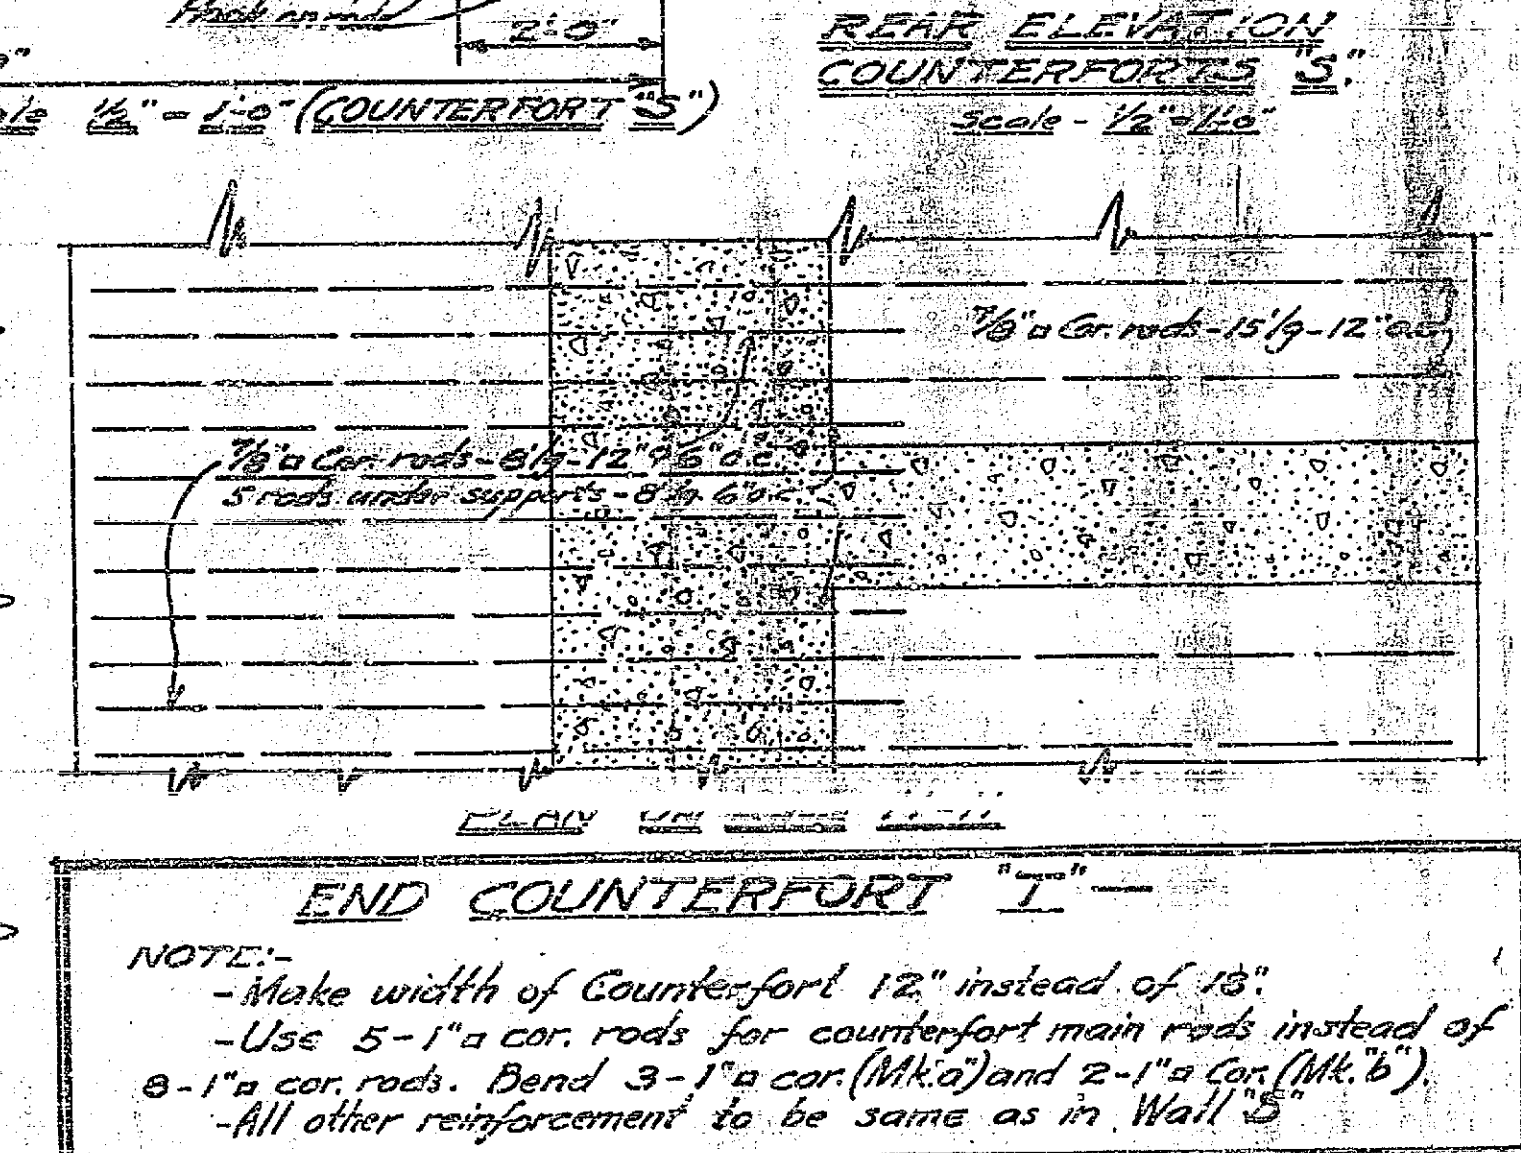 Hook on rods
2'-0"
REAR ELEVATION
COUNTERFORTS "S".
Scale - 1/2" = 1'-0"
1/2" = 1'-0" (COUNTERFORT "S")
7/8"⌑ Cor. rods - 15'lg - 12" o.c.
7/8"⌑ Cor. rods - 8'lg - 12" & 6" o.c.
5 rods under supports - 8' 6" o.c.
PLAN
END COUNTERFORT "T"
NOTE:-
- Make width of Counterfort 12" instead of 18".
- Use 5-1"⌑ cor. rods for counterfort main rods instead of
8-1"⌑ cor. rods. Bend 3-1"⌑ cor. (Mk."a") and 2-1"⌑ Cor. (Mk."b").
- All other reinforcement to be same as in Wall "S"